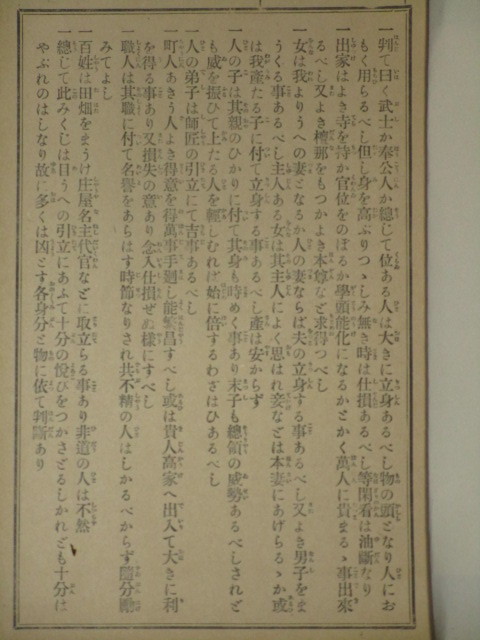 一判て曰く武士か奉公人か總じて位ある人は大きに立身あるべし物の頭となり人にお
もく用らるべし但し身を高ぶりつゝしみ無き時は仕損あるべし等閑看は油斷なり
一出家はよき寺を持か官位をのぼるか學頭能化になるかとかく萬人に貴まるゝ事出來
るべし又よき檀那をもつかよき本尊など求得つべし
一女は我よりうへの妻となるか人の妻ならば夫の立身する事あるべし又よき男子をま
うくる事あるべし主人ある女は其主人によく思はれ妾などは本妻にあげらるゝか或
は我產たる子に付て立身する事あるべし產は安からず
一人の子は其親のひかりに付て其身も時めく事あり末子も總領の威勢あるべしされど
も威を振ひて上たる人を輕しむれば始に倍するわざはひあるべし
一人の弟子は師匠の引立にて吉事あるべし
一町人あきう人よき得意を得萬事手廻し能繁昌すべし或は貴人高家へ出入て大きに利
を得る事あり又損失の意あり念入仕損ぜぬ樣にすべし
一職人は其職に付て名譽をあらはす時節なりされ共不精の人はしかるべからず隨分勵
みてよし
一百姓は田畑をまうけ庄屋名主代官などに取立らる事あり非道の人は不然
一總じて此みくじは目うへの引立にあふて十分の悅びをつかさどるしかれども十分は
やぶれのはしなり故に多くは凶とす各身分と物に依て判斷あり